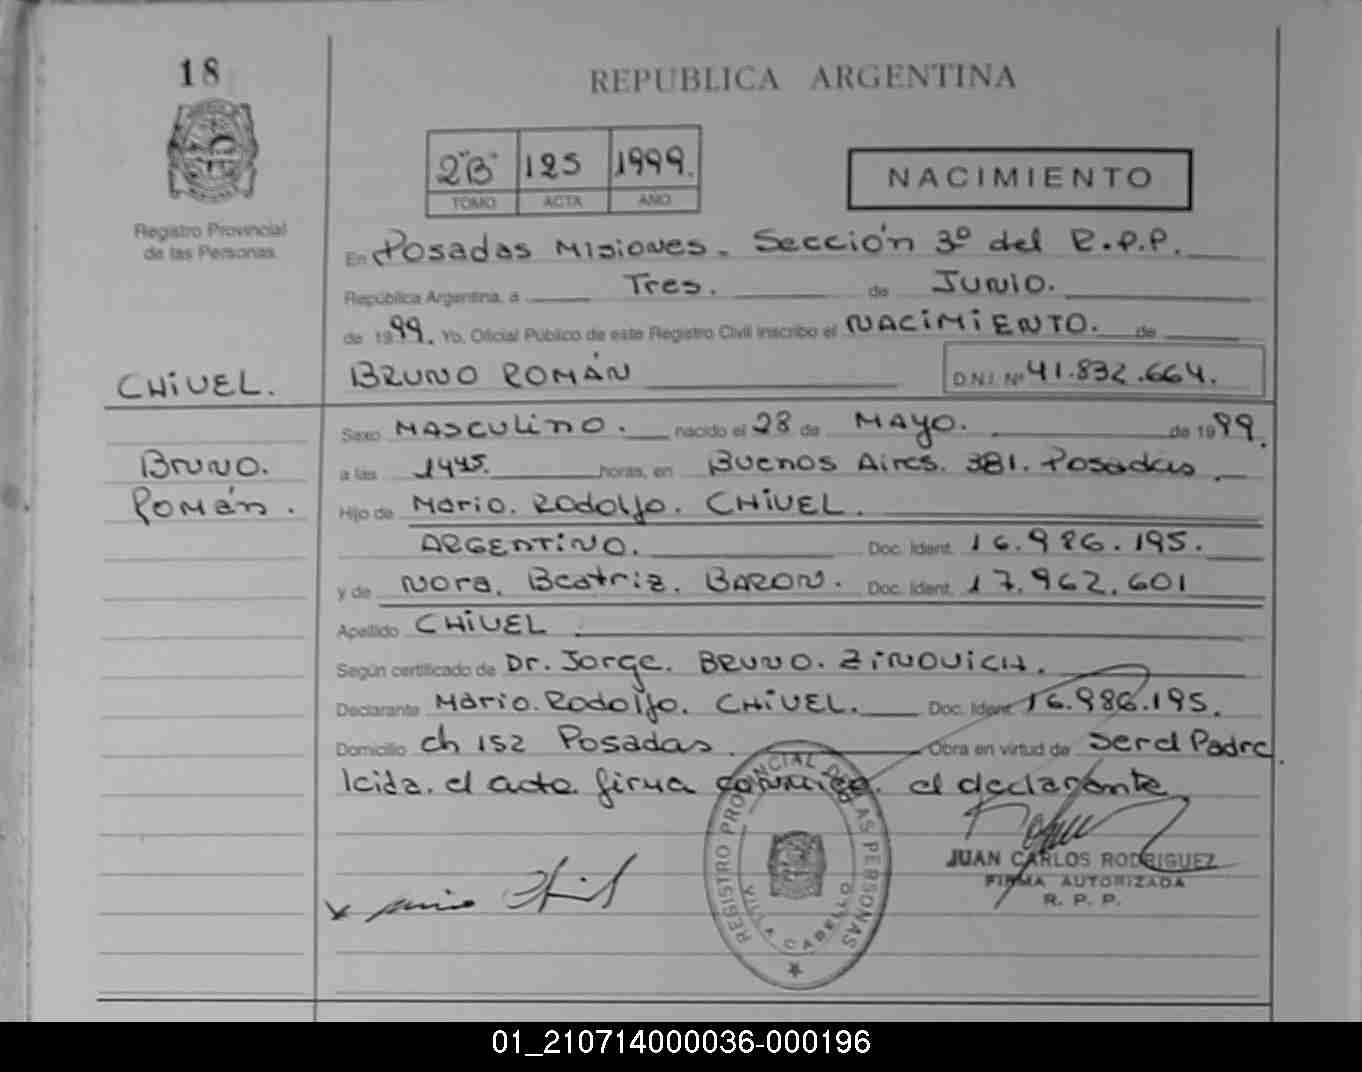 18
REPUBLICA ARGENTINA
2"B" 125 1999.
TOMO ACTA AÑO
NACIMIENTO
Registro Provincial
de las Personas
En Posadas Misiones. Sección 3º del R.P.P.
República Argentina, a Tres. de JUNIO.
de 1999. Yo, Oficial Público de este Registro Civil inscribo el NACIMIENTO. de
CHIVEL. BRUNO ROMÁN D.N.I. Nº 41.832.664.
Sexo MASCULINO. nacido el 28 de MAYO. de 1999.
BRUNO. a las 1445. horas, en Buenos Aires. 381. Posadas.
Román. Hijo de Mario. Rodolfo. CHIVEL.
ARGENTINO. Doc. Ident. 16.986.195.
y de Nora. Beatriz. BARON. Doc. Ident. 17.962.601
Apellido CHIVEL.
Según certificado de Dr. Jorge. BRUNO. ZINOVICH.
Declarante Mario. Rodolfo. CHIVEL. Doc. Ident. 16.986.195.
Domicilio ch 152 Posadas. Obra en virtud de ser el Padre
leida. el acta. firma conmigo. el declarante
REGISTRO PROVINCIAL DE LAS PERSONAS
VILLA CABELLO
JUAN CARLOS RODRIGUEZ
FIRMA AUTORIZADA
R. P. P.
01_210714000036-000196